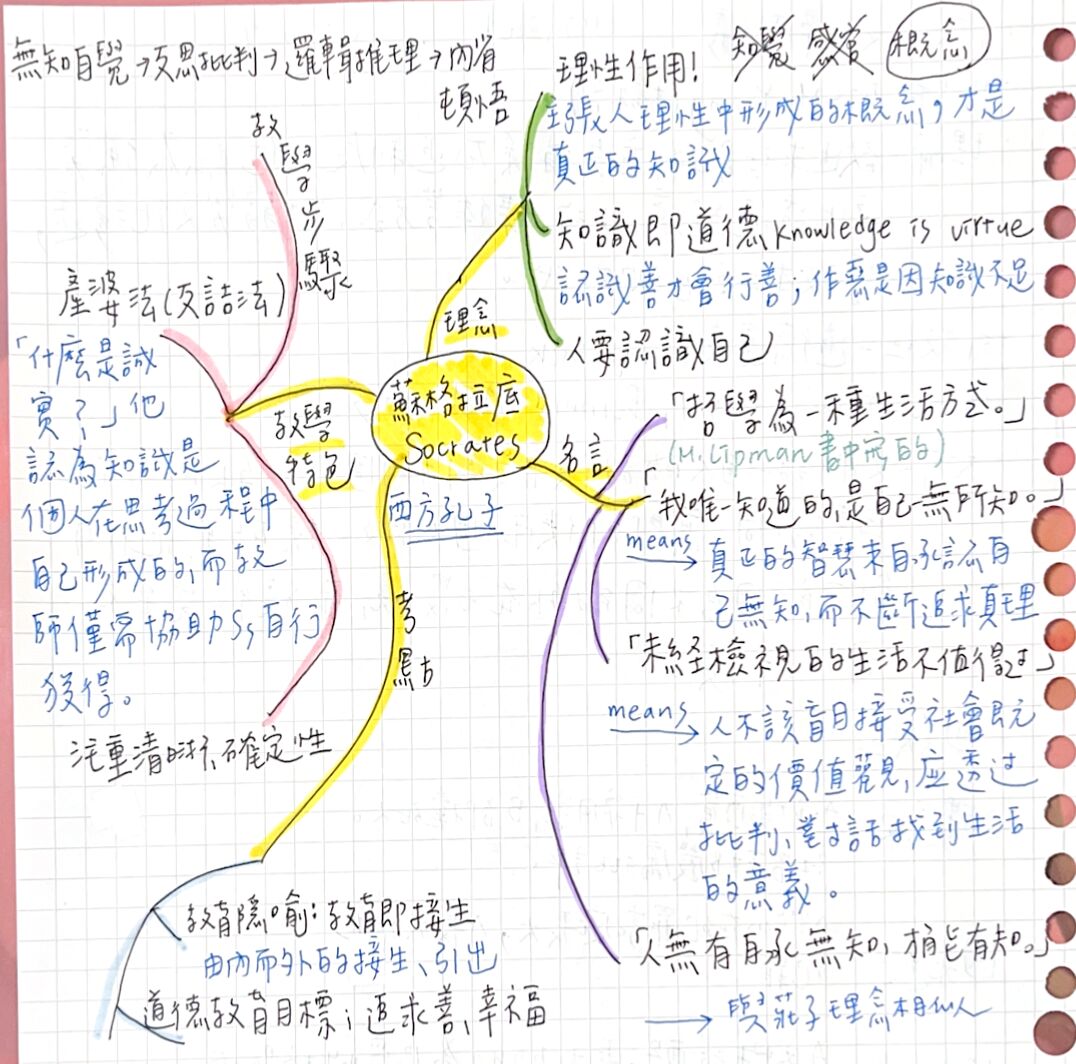 無知自覺→反思批判→邏輯推理→內省
頓悟
理性作用!
知覺 感官 概念
主張人理性中形成的概念,才是
真正的知識
知識即道德 knowledge is virtue
認識善才會行善;作惡是因知識不足
人要認識自己
理念
蘇格拉底
Socrates
西方孔子
教學
特色
教學步驟
產婆法(反詰法)
「什麼是誠
實?」他
認為知識是
個人在思考過程中
自己形成的,而教
師僅需協助Ss自行
獲得。
注重清晰、確定性
名言
「哲學為一種生活方式。」
(M. Lipman 書中寫的)
「我唯一知道的,是自己無所知。」
means
真正的智慧來自承認自
己無知,而不斷追求真理
「未經檢視的生活不值得過」
means
人不該盲目接受社會既
定的價值觀,应透过
批判、對話找到生活
的意義。
「人無有自承無知,才能有知。」
→ 與莊子理念相似
考點
教育隱喻:教育即接生
由內而外的接生、引出
道德教育目標;追求善、幸福